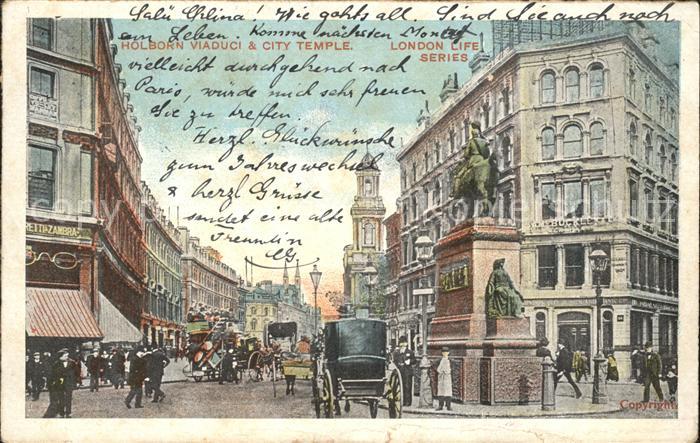 Salü Chlina! Wie gahts all. Sind Sie auch noch
am Leben. Komme nächsten Monat
HOLBORN VIADUCT & CITY TEMPLE. LONDON LIFE
SERIES.
vielleicht durchgehend nach
Paris, würde mich sehr freuen
Sie zu treffen.
Herzl. Glückwünsche
zum Jahreswechsel
& herzl Grüsse
sendet eine alte
Freundin
RETTI & ZAMBRA
Copyright